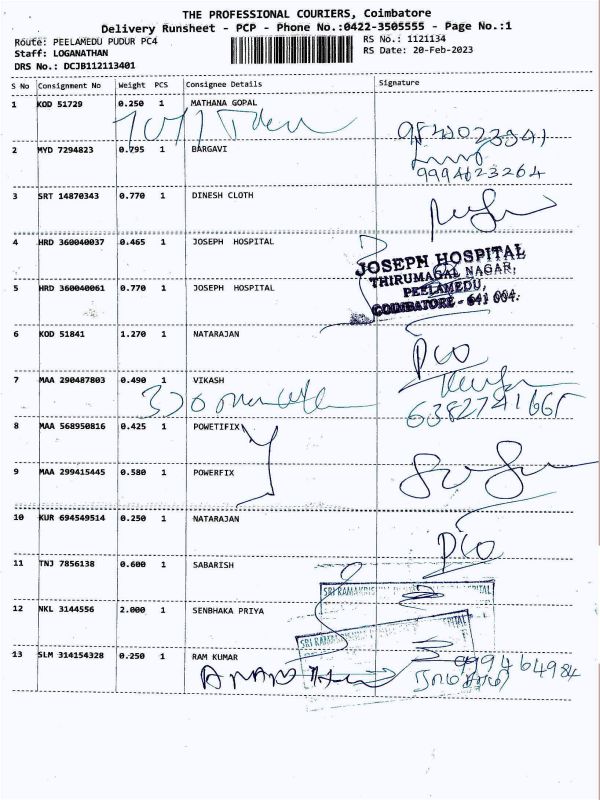 THE PROFESSIONAL COURIERS, Coimbatore
Delivery Runsheet - PCP - Phone No.:0422-3505555 - Page No.:1
Route: PEELAMEDU PUDUR PC4 RS No.: 1121134
Staff: LOGANATHAN RS Date: 20-Feb-2023
DRS No.: DCJB112113401
S No Consignment No Weight PCS Consignee Details Signature
1 KOD 51729 0.250 1 MATHANA GOPAL
2 MYD 7294823 0.795 1 BARGAVI
9994623264
3 SRT 14870343 0.770 1 DINESH CLOTH
4 HRD 360040037 0.465 1 JOSEPH HOSPITAL
JOSEPH HOSPITAL
THIRUMAGAL NAGAR,
5 HRD 360040061 0.770 1 JOSEPH HOSPITAL
PEELAMEDU,
COIMBATORE - 641 004.
6 KOD 51841 1.270 1 NATARAJAN
7 MAA 290487803 0.490 1 VIKASH
8 MAA 568950816 0.425 1 POWETIFIX
9 MAA 299415445 0.580 1 POWERFIX
10 KUR 694549514 0.250 1 NATARAJAN
11 TNJ 7856138 0.600 1 SABARISH
12 NKL 3144556 2.000 1 SENBHAKA PRIYA
13 SLM 314154328 0.250 1 RAM KUMAR